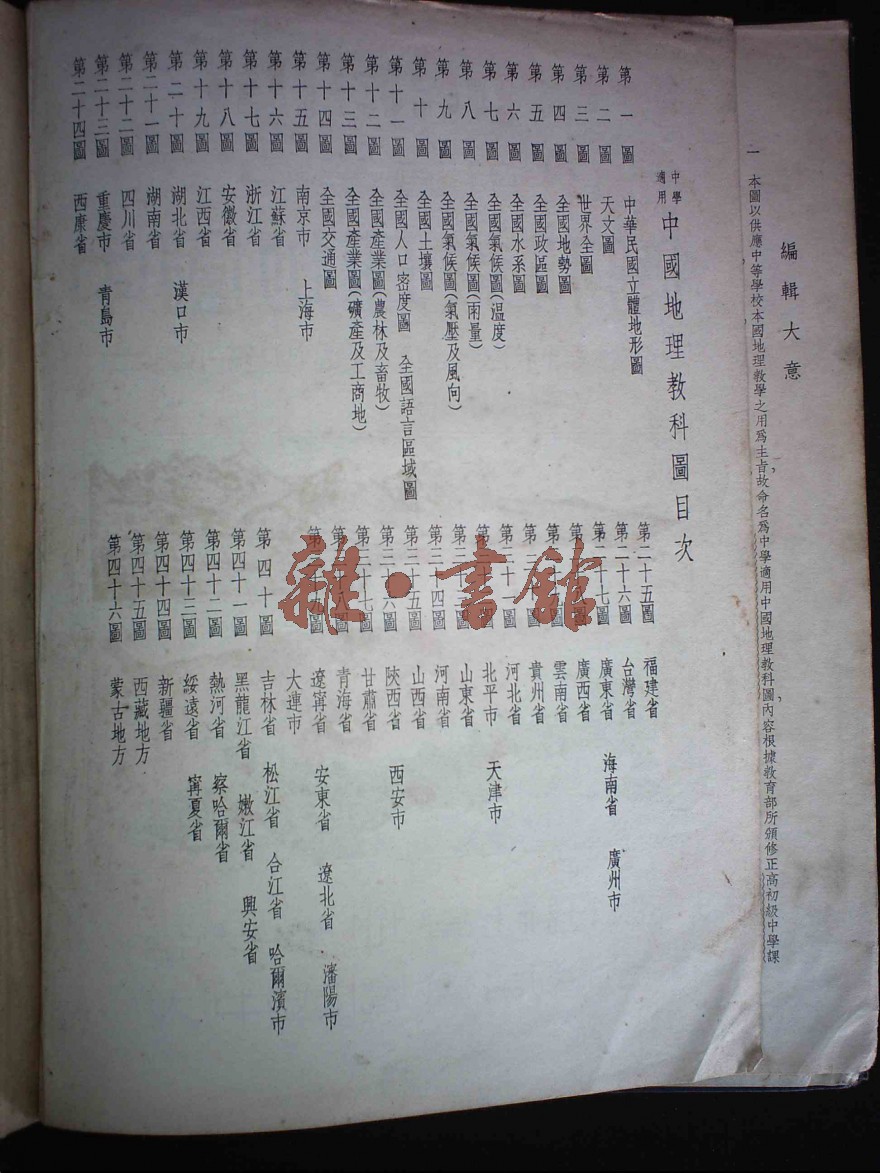 編輯大意
一 本圖以供應中等學校本國地理教學之用爲主旨,故命名爲中學適用中國地理教科圖,內容根據教育部所頒修正高初級中學課
中學適用 中國地理教科圖目次
第一圖 中華民國立體地形圖
第二圖 天文圖
第三圖 世界全圖
第四圖 全國地勢圖
第五圖 全國政區圖
第六圖 全國水系圖
第七圖 全國氣候圖(溫度)
第八圖 全國氣候圖(雨量)
第九圖 全國氣候圖(氣壓及風向)
第十圖 全國土壤圖
第十一圖 全國人口密度圖 全國語言區域圖
第十二圖 全國產業圖(農林及畜牧)
第十三圖 全國產業圖(礦產及工商地)
第十四圖 全國交通圖
第十五圖 南京市 上海市
第十六圖 江蘇省
第十七圖 浙江省
第十八圖 安徽省
第十九圖 江西省
第二十圖 湖北省 漢口市
第二十一圖 湖南省
第二十二圖 四川省
第二十三圖 重慶市 青島市
第二十四圖 西康省
第二十五圖 福建省
第二十六圖 台灣省
第二十七圖 廣東省 海南省 廣州市
第二十八圖 廣西省
第二十九圖 雲南省
第三十圖 貴州省
第三十一圖 河北省
第三十二圖 北平市 天津市
第三十三圖 山東省
第三十四圖 河南省
第三十五圖 山西省
第三十六圖 陝西省 西安市
第三十七圖 甘肅省
第三十八圖 青海省
第三十九圖 遼寧省 安東省 遼北省 瀋陽市
大連市
第四十圖 吉林省 松江省 合江省 哈爾濱市
第四十一圖 黑龍江省 嫩江省 興安省
第四十二圖 熱河省 察哈爾省
第四十三圖 綏遠省 寧夏省
第四十四圖 新疆省
第四十五圖 西藏地方
第四十六圖 蒙古地方
雜·書館